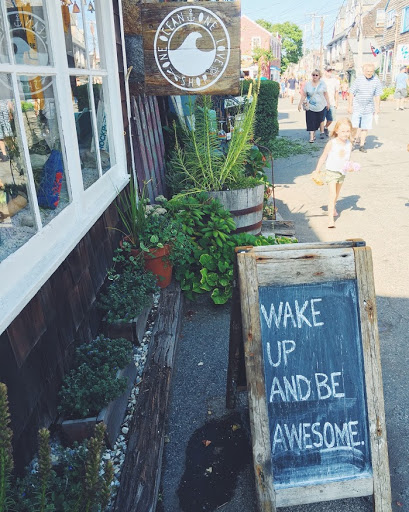 ONE OCEAN ONE LOVE SHOP
WAKE
UP
AND BE
AWESOME.